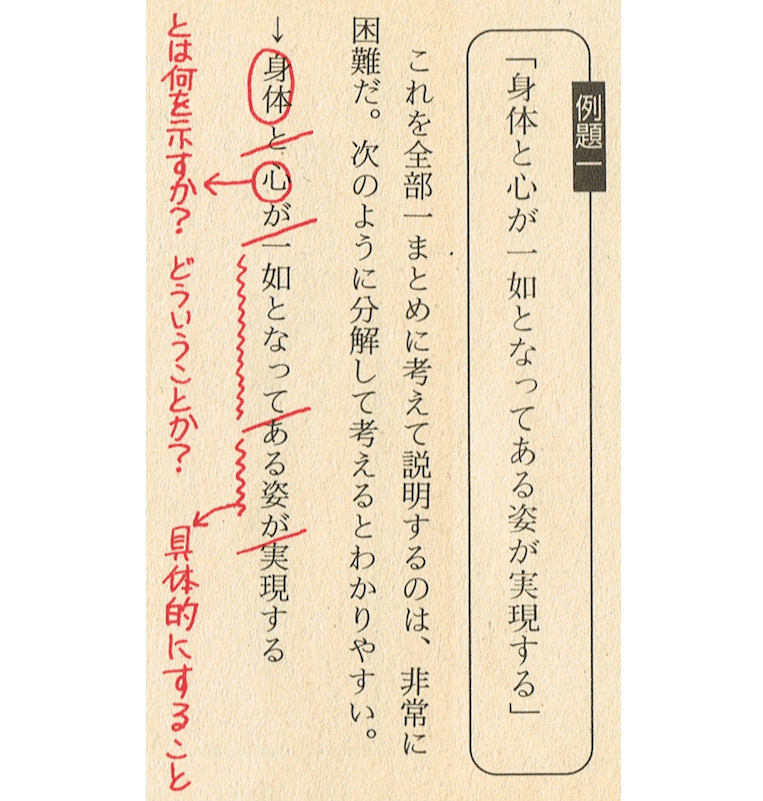 例題一
「身体と心が一如となってある姿が実現する」
これを全部一まとめに考えて説明するのは、非常に
困難だ。次のように分解して考えるとわかりやすい。
→身体と心が一如となってある姿が実現する
とは何を示すか？ どういうことか？ 具体的にすること